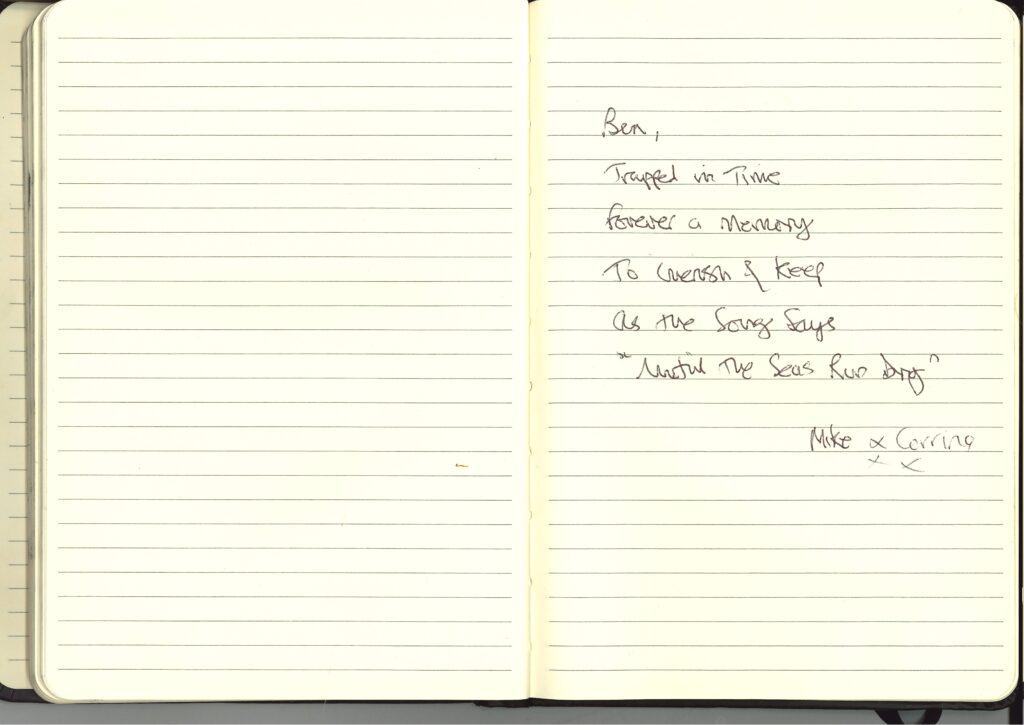 Ben,
Trapped in Time
forever a Memory
To cherish & keep
as the Song Says
"Until The Seas Run Dry"
Mike & Corrina
x x